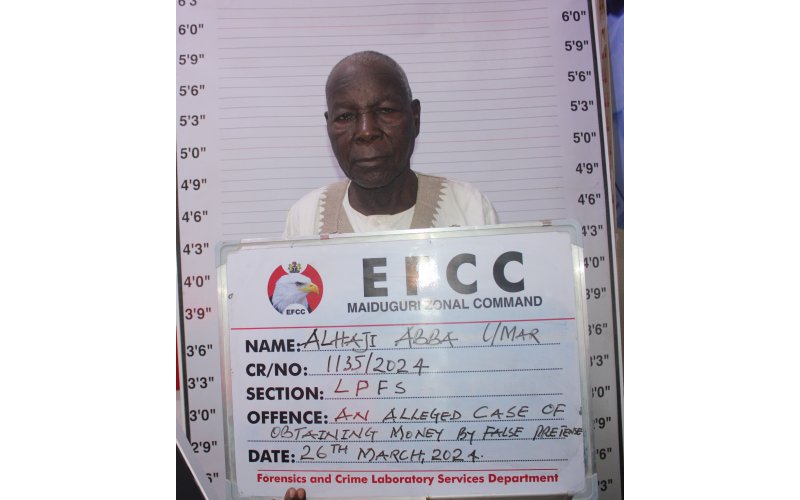 6'3
6'0"
5'9"
5'6"
5'3"
5'0"
4'9"
4'6"
4'3"
4'0"
3'9"
3'6"
3'3"
3'0"
2'9"
6'0"
5'9"
5'6"
5'3"
5'0"
4'9"
4'6"
4'3"
4'0"
3'9"
3'6"
3'3"
3'0"
EFCC
MAIDUGURI ZONAL COMMAND
EFCC
NAME: ALHAJI ABBA UMAR
CR/NO: 1135/2024
SECTION: LPFS
OFFENCE: AN ALLEGED CASE OF
OBTAINING MONEY BY FALSE PRETENSE
DATE: 26TH MARCH, 2024.
Forensics and Crime Laboratory Services Department